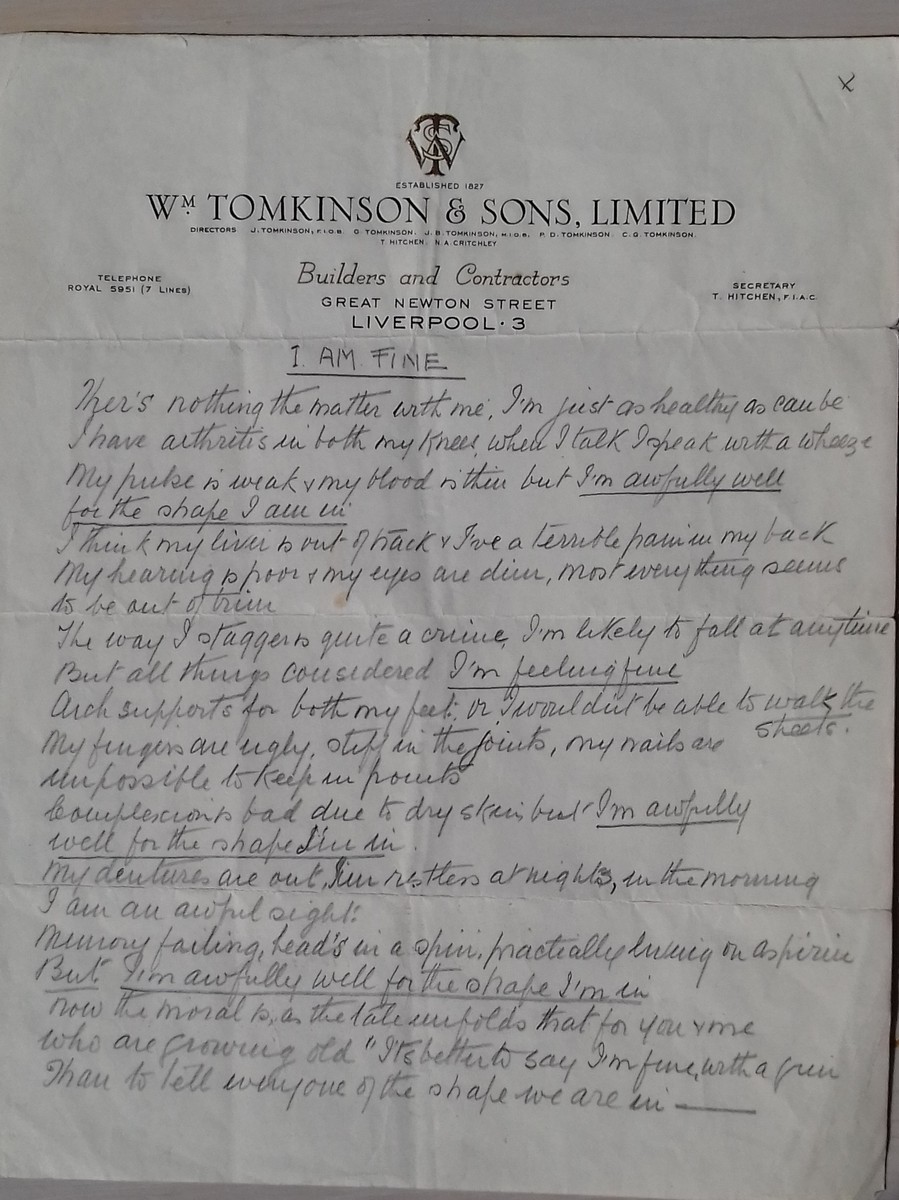 X
ESTABLISHED 1827
WM TOMKINSON & SONS, LIMITED
DIRECTORS J. TOMKINSON, F.I.O.B. G. TOMKINSON. J. B. TOMKINSON, M.I.O.B. P. D. TOMKINSON. C. G. TOMKINSON.
T. HITCHEN. N. A. CRITCHLEY
TELEPHONE
ROYAL 5951 (7 LINES)
Builders and Contractors
GREAT NEWTON STREET
LIVERPOOL · 3
SECRETARY
T. HITCHEN, F.I.A.C.
I. AM. FINE
Ther's nothing the matter with me, I'm just as healthy as can be
I have arthritis in both my knees, when I talk I speak with a wheeze
My pulse is weak & my blood is thin but I'm awfully well
for the shape I am in
I think my liver is out of track & I've a terrible pain in my back
My hearing is poor & my eyes are dim, most everything seems
to be out of trim
The way I stagger is quite a crime, I'm likely to fall at anytime
But all things considered I'm feeling fine
Arch supports for both my feet, or I wouldn't be able to walk the
streets.
My fingers are ugly, stiff in the joints, my nails are
impossible to keep in points
Complexion is bad due to dry skin but I'm awfully
well for the shape I'm in.
My dentures are out, I'm restless at nights, in the morning
I am an awful sight.
Memory failing, head's in a spin, practically living on aspirin
But I'm awfully well for the shape I'm in
now the moral is, as the tale unfolds that for you & me
who are growing old "It's better to say I'm fine, with a grin
Than to tell everyone of the shape we are in ——